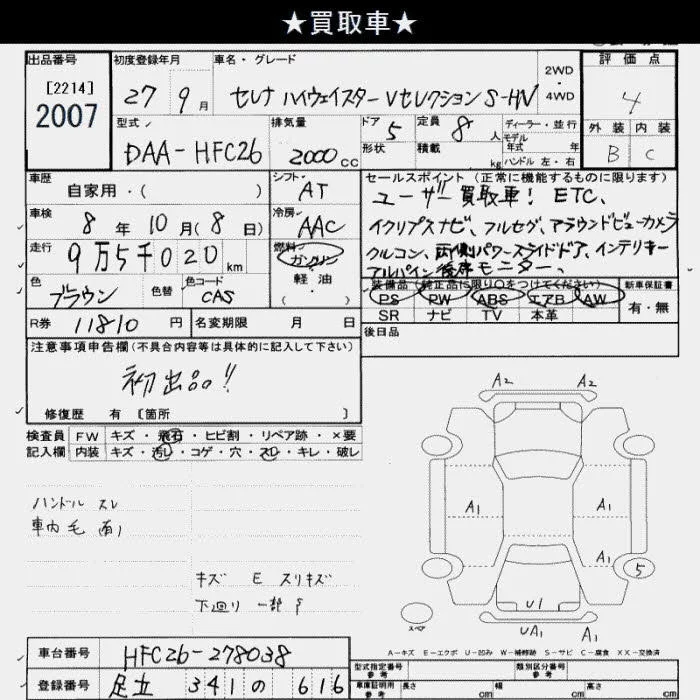 ★買取車★
出品番号 初度登録年月 車名・グレード 2WD・4WD 評価点
[2214]
2007
27 9月 セレナ ハイウェイスター Vセレクション S-HV 4
型式 排気量 ドア 5 定員 8人 ディーラー・並行 外装 内装
モデル年式 年
DAA-HFC26 2000cc 形状 積載 kg ハンドル 左・右 B C
車歴 シフト セールスポイント (正常に機能するものに限ります)
自家用・( ) AT ユーザー買取車! ETC、
車検 冷房
8年10月(8日) AAC イクリプスナビ、フルセグ、アラウンドビューカメラ
走行 燃料
9万5千020km ガソリン クルコン、両側パワースライドドア、インテリキー
軽油 アルパイン後席モニター、
色 色替 色コード (・)
ブラウン CAS
装備品 (純正品に限り○をつけてください) 新車保証書
PS PW ABS エアB AW 有・無
SR ナビ TV 本革
R券 11810円 名変期限 月 日 後日品
注意事項申告欄(不具合内容等は具体的に記入して下さい)
初出品!!
修復歴 有 [箇所 ]
検査員 FW キズ・飛石・ヒビ割・リペア跡・×要
記入欄 内装 キズ・汚レ・コゲ・穴・スレ・キレ・破レ
A2 A2
ハンドル スレ
車内毛 有り
A1 A1
A1
5
キズ E スリキズ
下廻り 一部 S
U1
スペア
UA1 A1
A-キズ E-エクボ U-凹み W-補修跡 S-サビ C-腐食 XX-交換済
車台番号 HFC26-278038
型式指定番号 参考 類別区分番号 参考
登録番号 足立 341 の 616
車庫証明用 参考 長さ cm 幅 cm 高さ cm